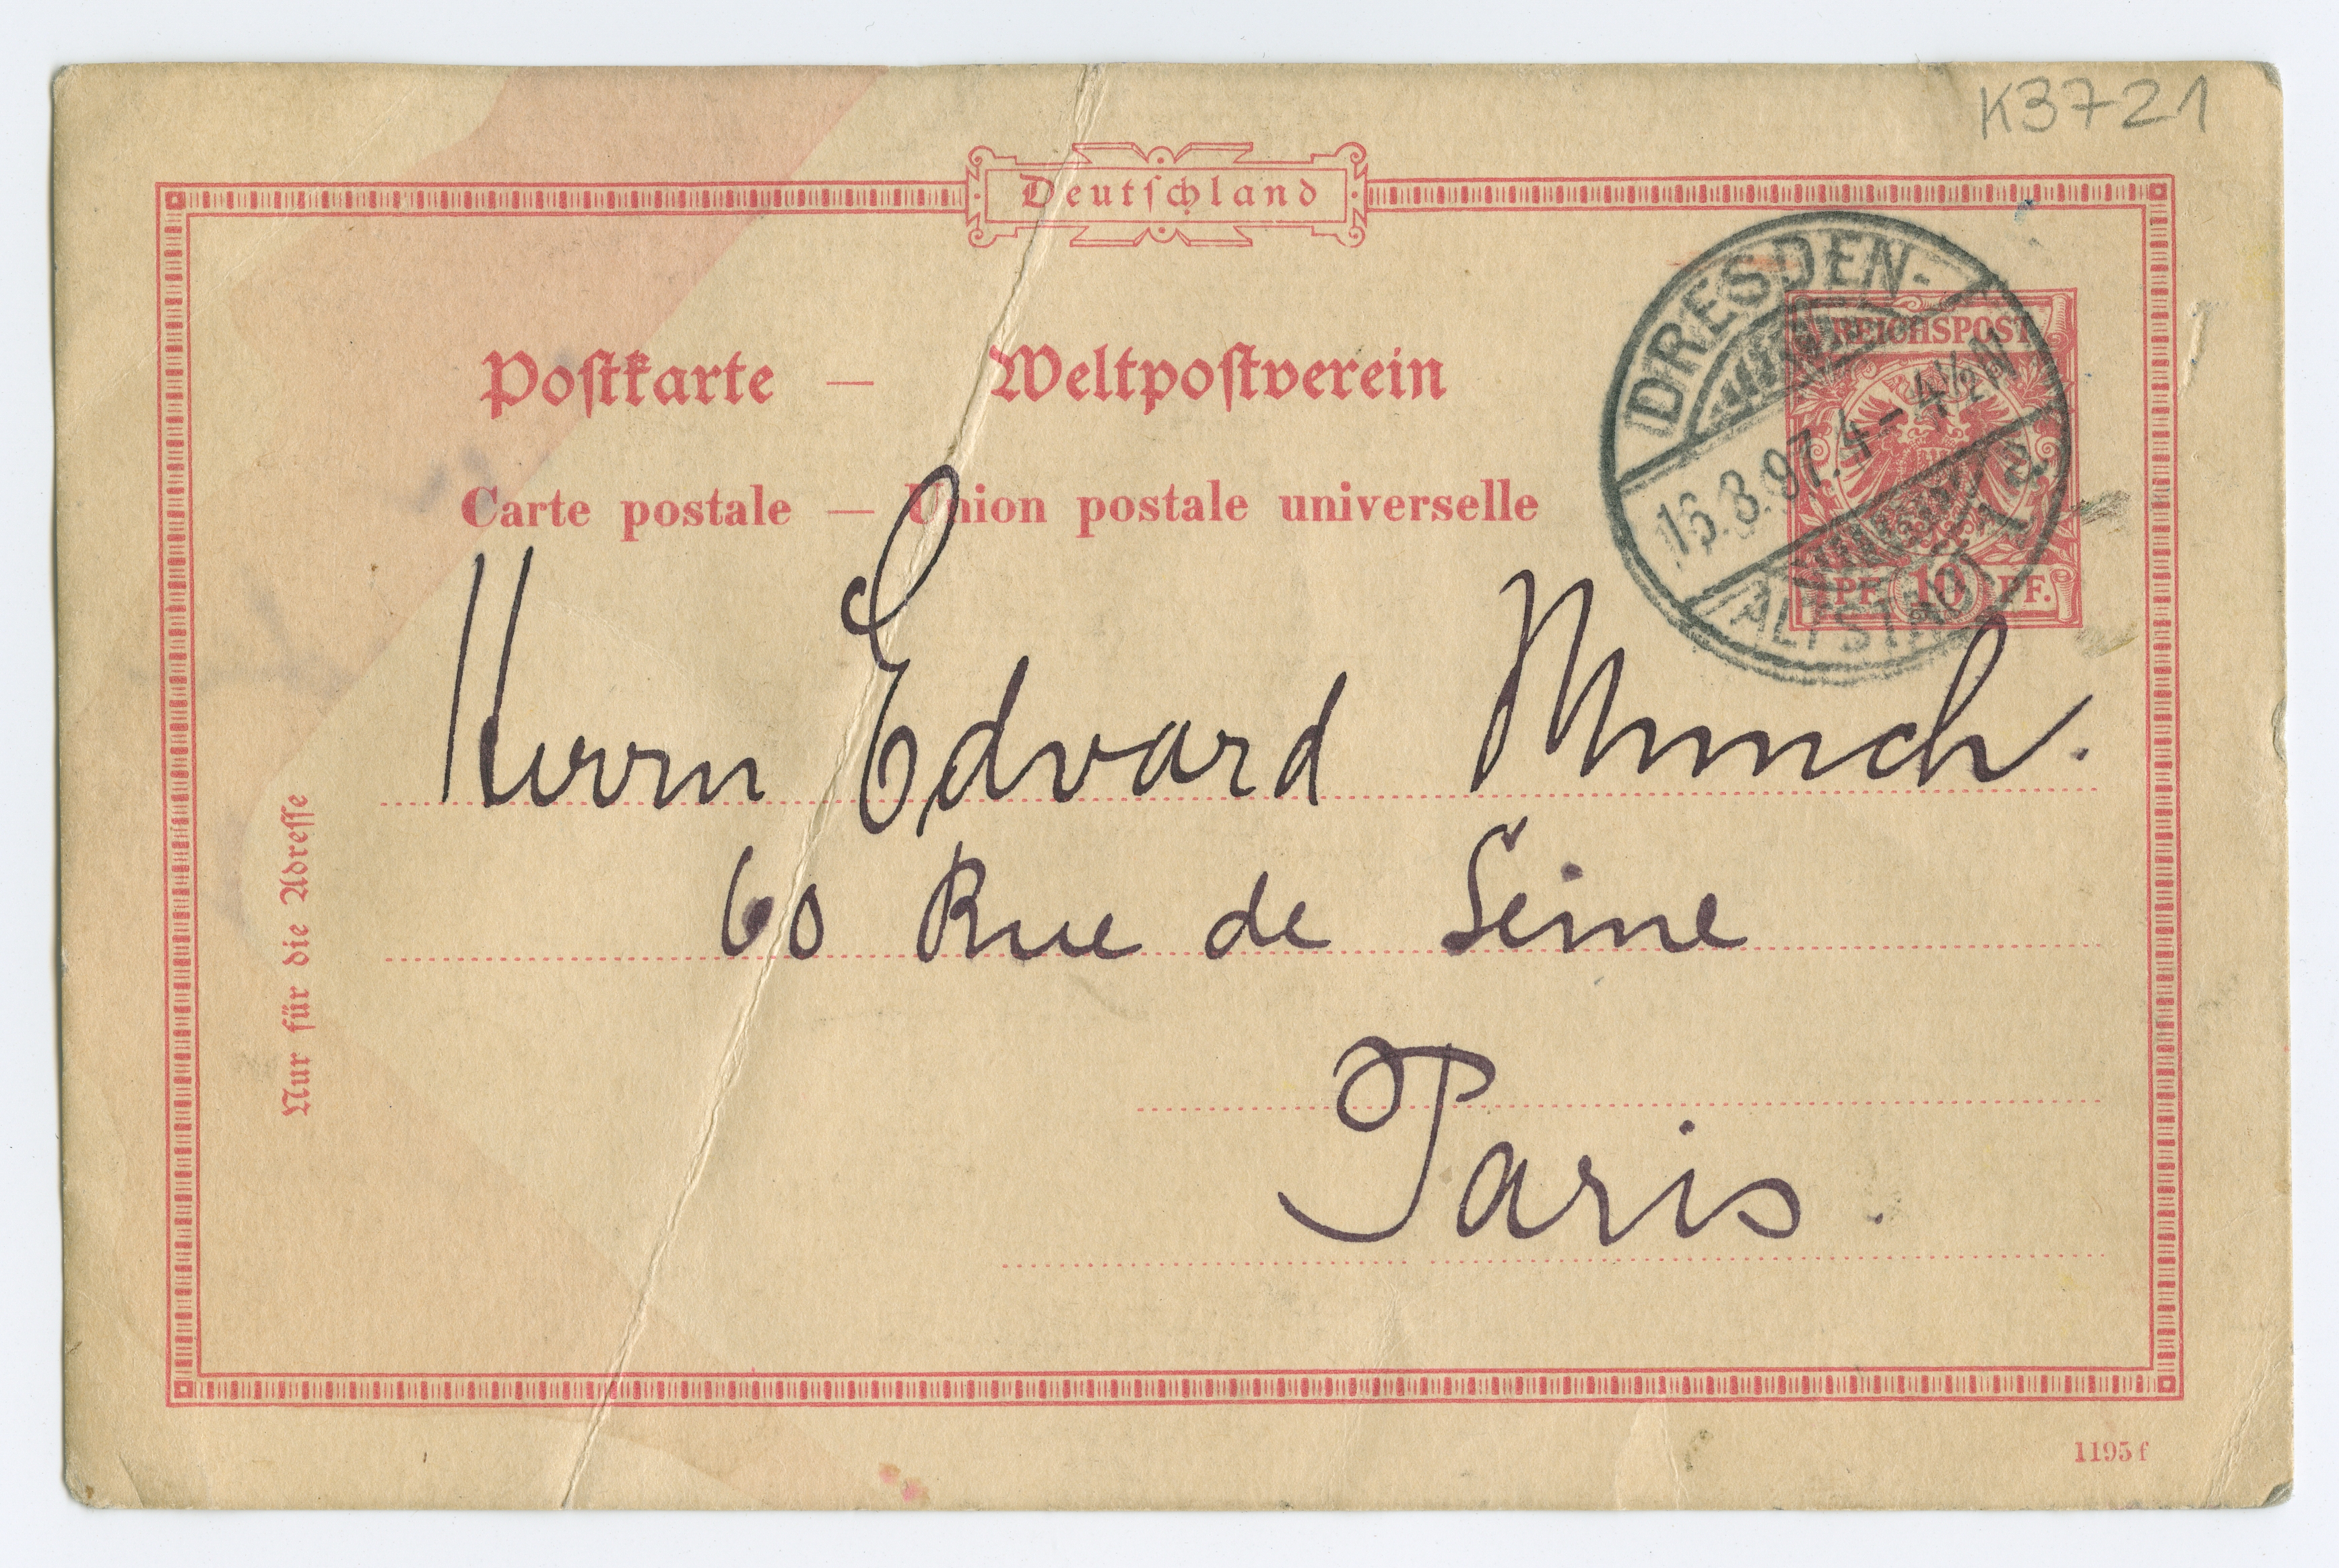 K3721
Deutſchland
DRESDEN-
REICHSPOST
Poſtkarte — Weltpoſtverein
16.8.97.4-4½N
Carte postale — Union postale universelle
ALTSTADT 1 a.
PF. 10 PF.
Herrn Edvard Munch.
60 Rue de Seine
Paris.
Nur für die Adreſſe
1195 f